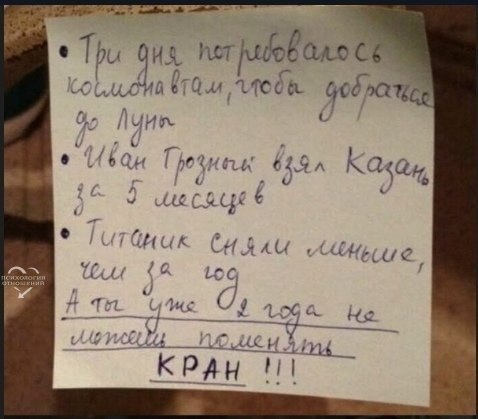 • Три дня потребовалось
космонавтам, чтобы добраться
до Луны
• Иван Грозный взял Казань
за 5 месяцев
• Титаник сняли меньше,
чем за год
А ты уже 2 года не
можешь поменять
КРАН !!!
ПСИХОЛОГИЯ
ОТНОШЕНИЙ